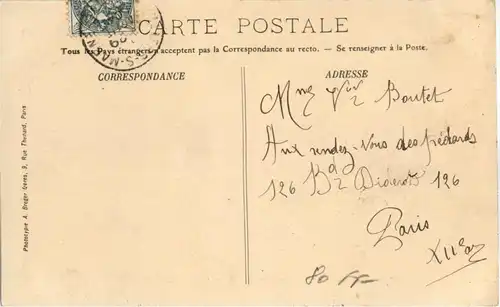 CARTE POSTALE
Tous les Pays étrangers n'acceptent pas la Correspondance au recto. — Se renseigner à la Poste.
CORRESPONDANCE
ADRESSE
Boutet
Aux rendez-vous des
126 Bd Diderot 126
Paris
XII ar
80
Phototypie A. Breger frères, 9, Rue Thénard, Paris